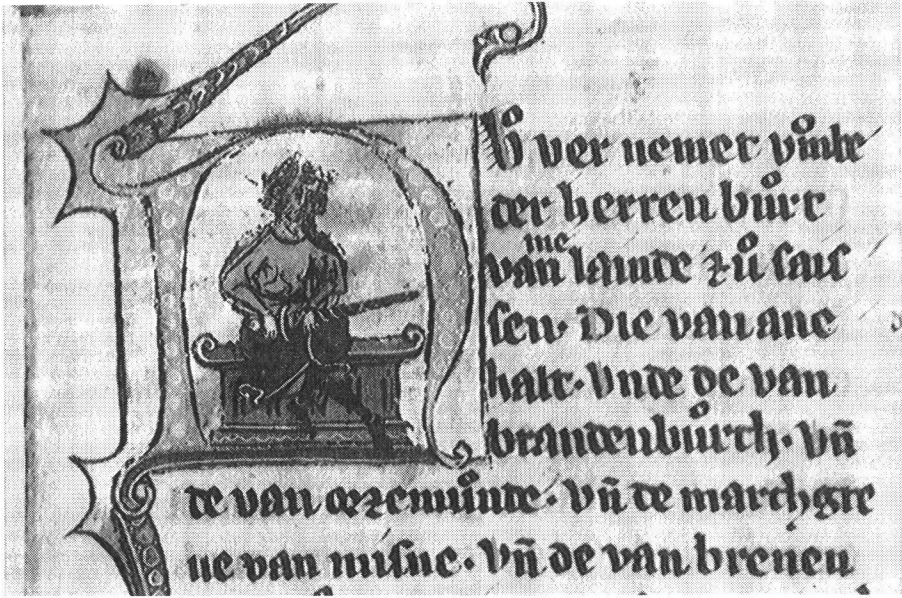 Nů ver nemet vͦmbe
der herren bůrt
van me lande zů sais
sen· Die van ane
halt· vnde de van
brandenbůrch· vn̄
de van orzemůnde· vn̄ de marchgre
ue van misne· vn̄ de van brenen